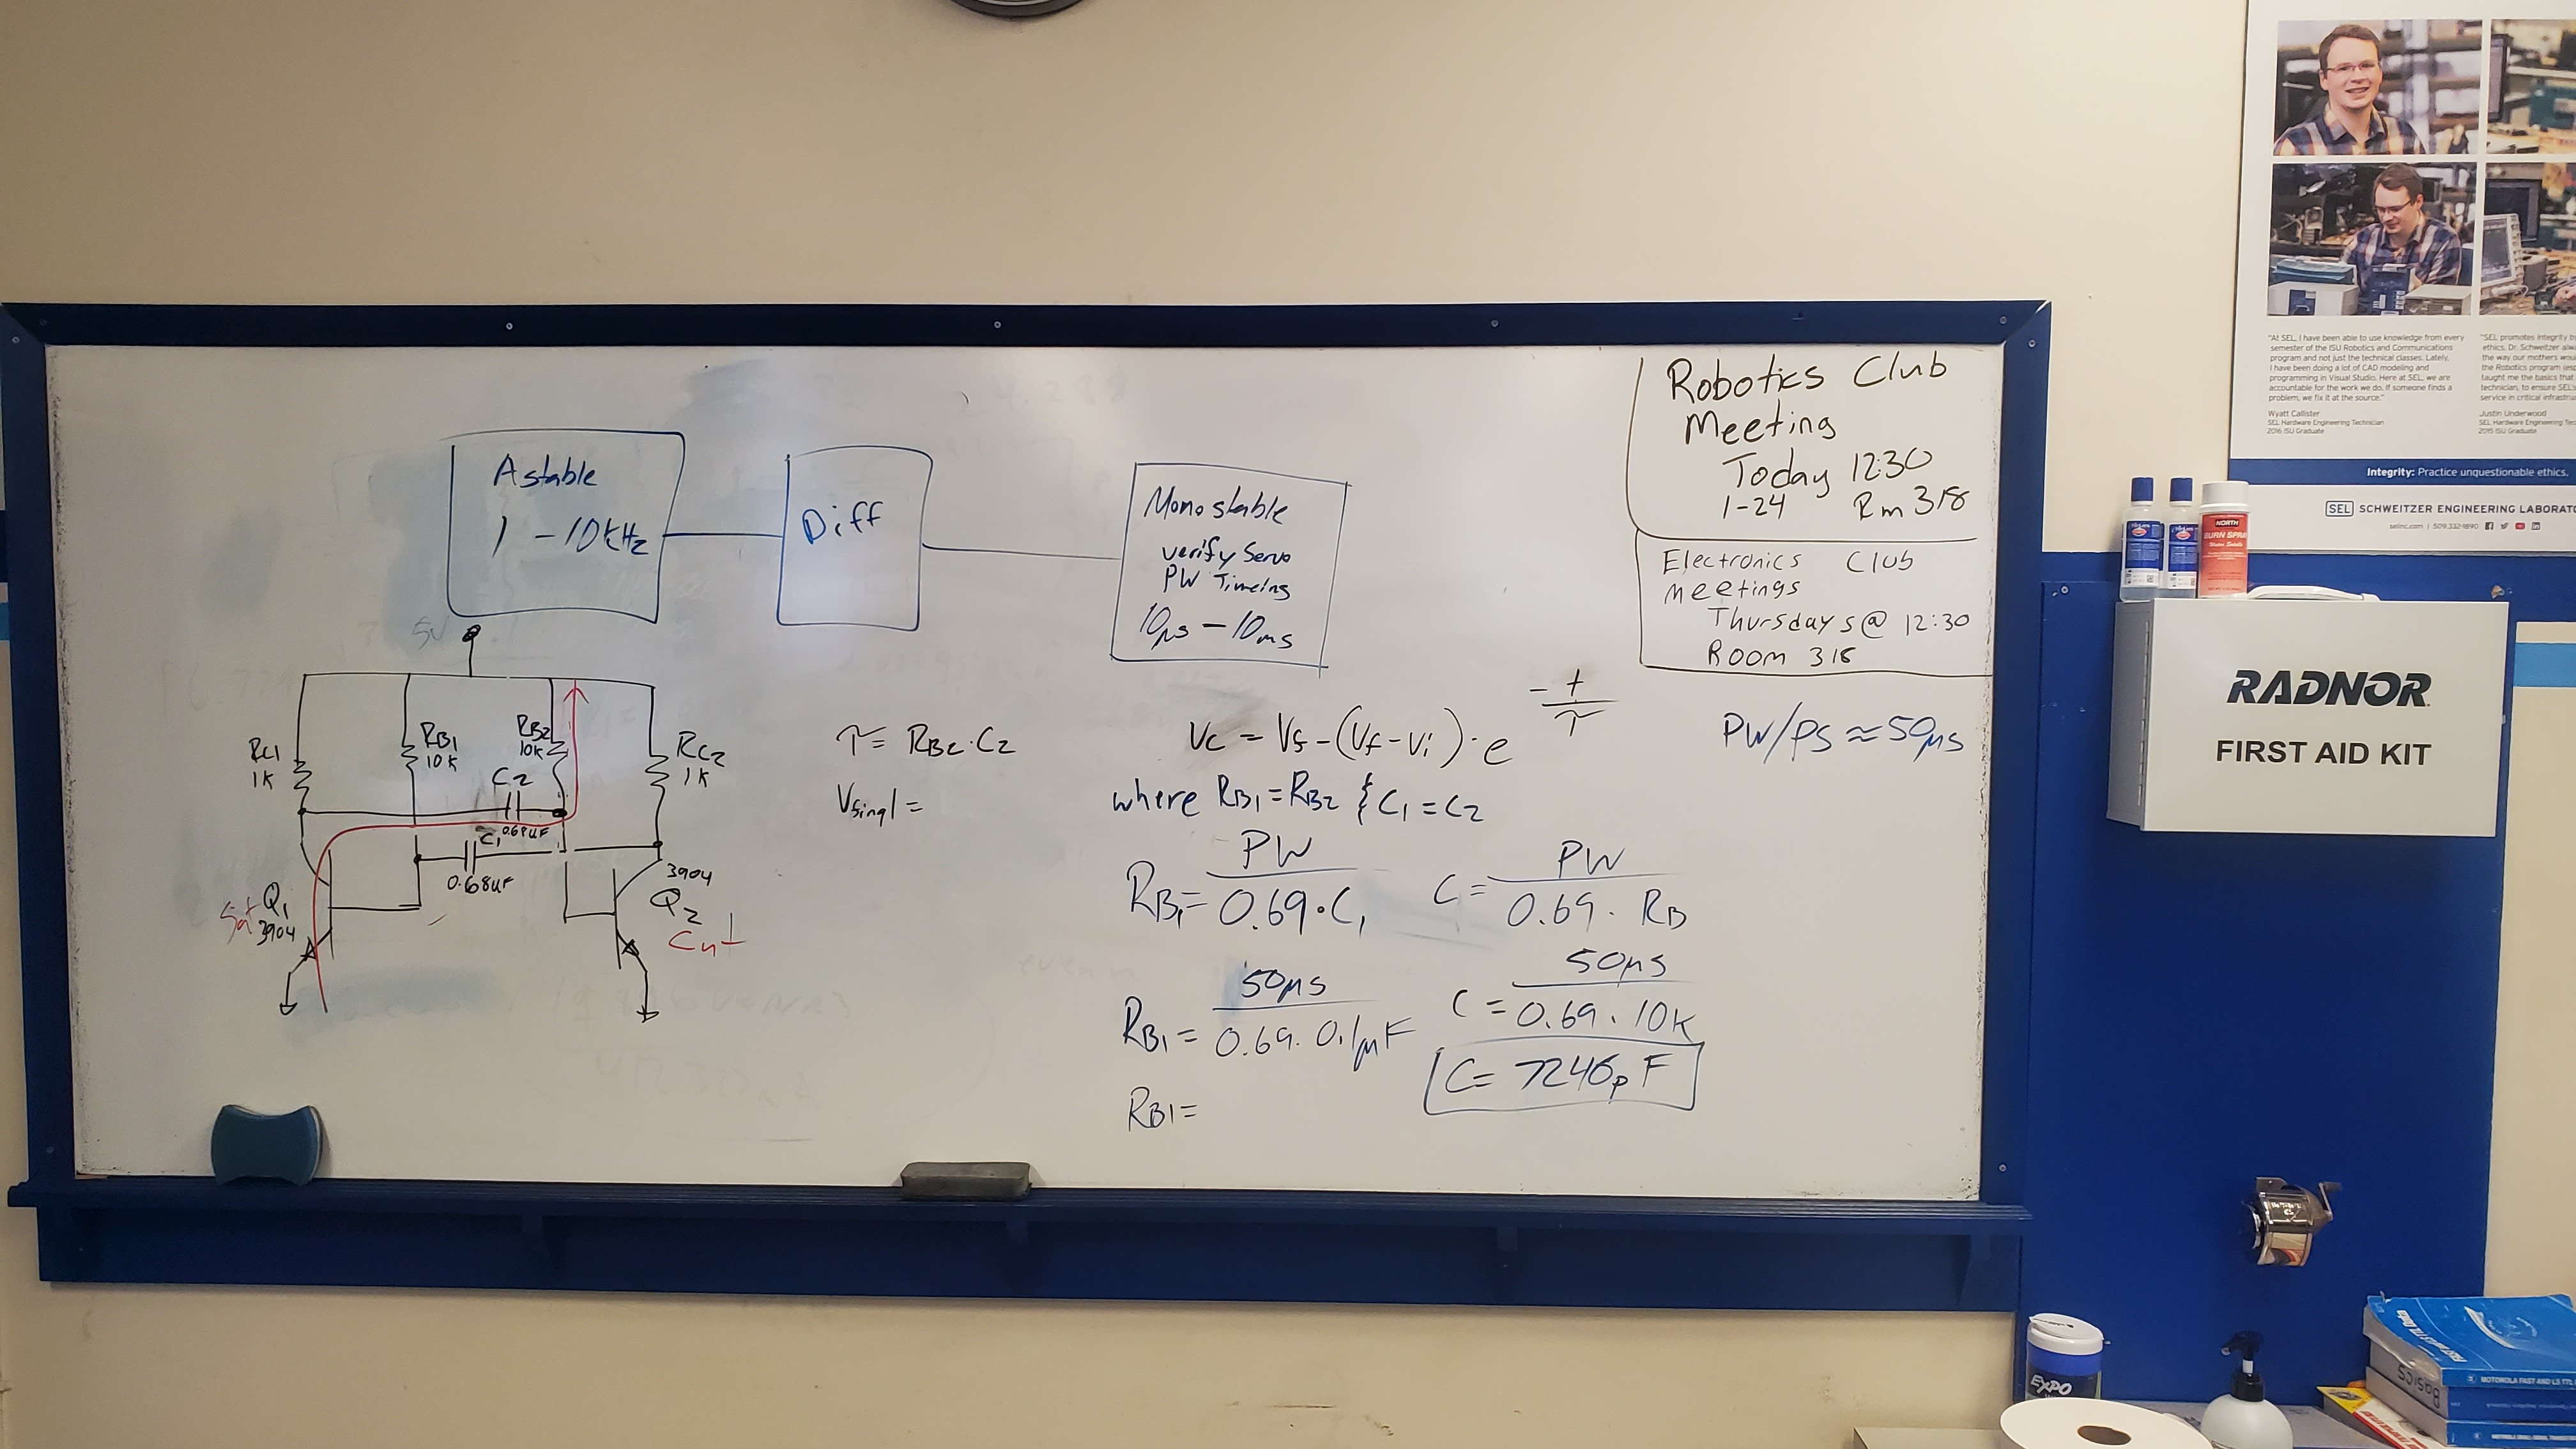 Astable
1 - 10kHz
Diff
Monostable
verify Servo
PW Timeing
10µs - 10ms
Robotics Club
Meeting
Today 12:30
1-24 Rm 318
Electronics Club
meetings
Thursdays @ 12:30
Room 318
5V
RC1
1K
RB1
10K
RB2
10K
RC2
1K
C2
0.68uF
C1
0.68uF
Sat Q1
3904
3904
Q2
Cut
τ = RB2 · C2
Vfinal =
Vc = Vf - (Vf - Vi) · e^(-t/τ)
where RB1 = RB2 & C1 = C2
RB1 = PW / 0.69 · C1
C = PW / 0.69 · RB
RB1 = 50µs / 0.69 · 0.1µF
C = 50µs / 0.69 · 10K
C = 7246pF
RB1 =
PW/PS ≈ 50µs
"At SEL, I have been able to use knowledge from every
semester of the ISU Robotics and Communications
program and not just the technical classes. Lately,
I have been doing a lot of CAD modeling and
programming in Visual Studio. Here at SEL, we are
accountable for the work we do. If someone finds a
problem, we fix it at the source."
Wyatt Callister
SEL Hardware Engineering Technician
2016 ISU Graduate
"SEL promotes integrity
ethics. Dr. Schweitzer
the way our mothers
the Robotics program
taught me the basics that
technician, to ensure SEL's
service in critical
Justin Underwood
SEL Hardware Engineering
2015 ISU Graduate
Integrity: Practice unquestionable ethics.
SEL SCHWEITZER ENGINEERING
selinc.com | 509.332.1890
NORTH
BURN SPRAY
RADNOR
FIRST AID KIT
EXPO
Basics
MOTOROLA FAST AND LS TTL